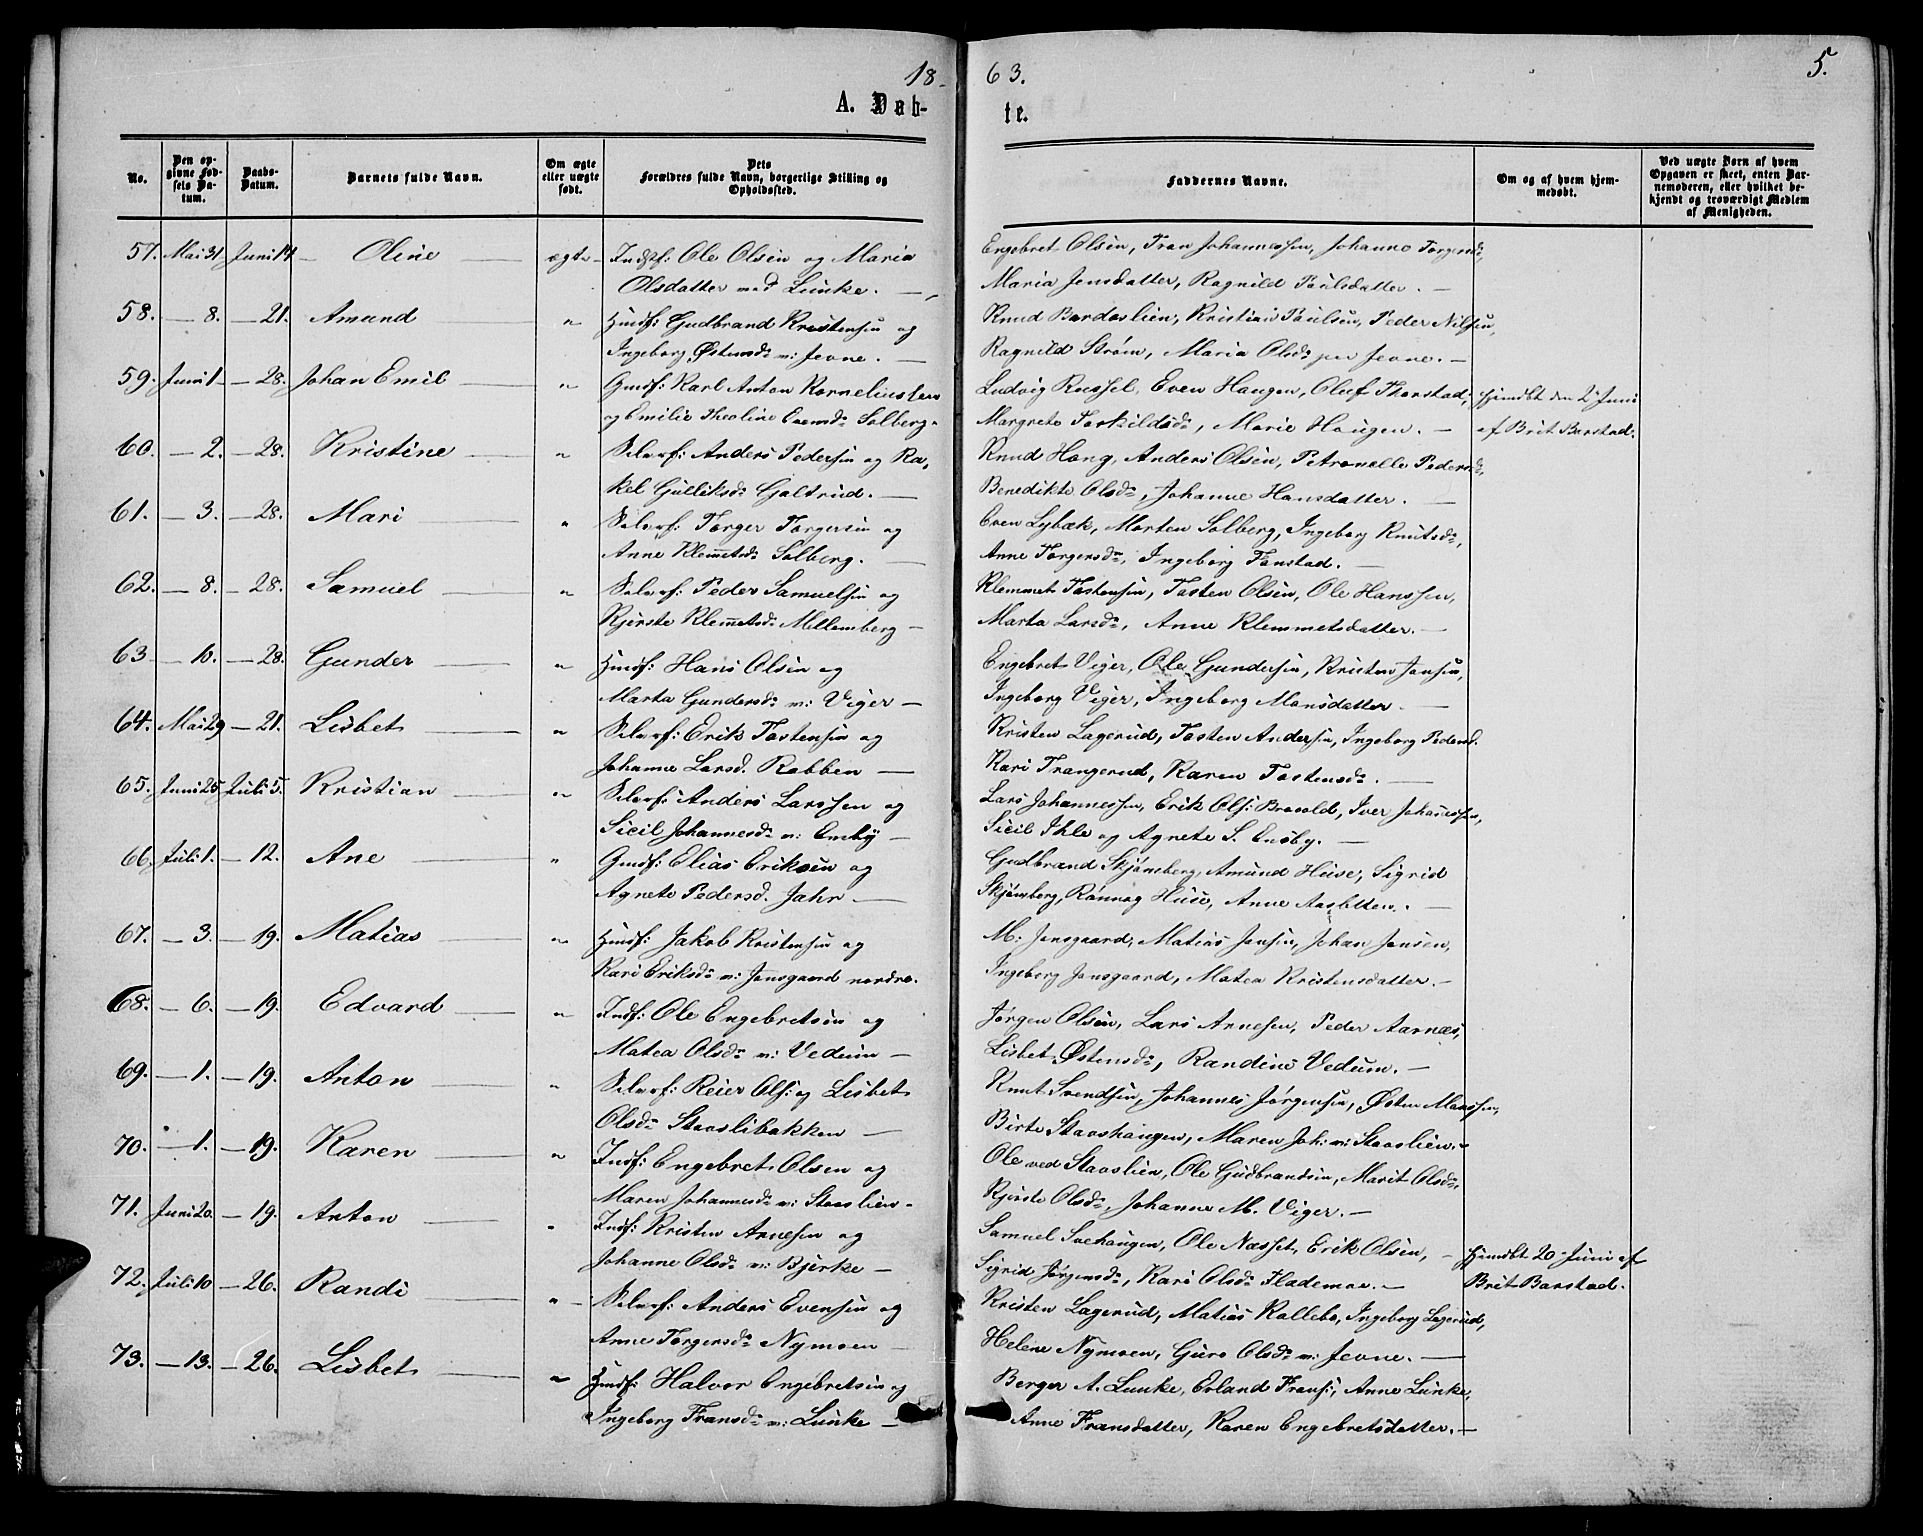 18
63.
5.
A. Døb-
te.
No.
Den opgivne Fødsels Datum.
Daabs-Datum.
Barnets fulde Navn.
Om ægte eller uægte født.
Dets Forældres fulde Navn, borgerlige Stilling og Opholdssted.
Faddernes Navne.
Om og af hvem hjemmedøbt.
Ved uægte Børn af hvem Opgaven er skeet, enten Barnemoderen, eller hvilket bekjendt og troværdigt Medlem af Menigheden.
57. Mai 31 Juni 14 Oline ægte Indsf: Ole Olsen og Maria
Olsdatter ved Lunke.
Engebret Olsen, Fran Johannessen, Johanne Torgersd:,
Maria Jensdatter, Ragnild Paulsdatter.
58. — 8. — 21. Amund " Huusf: Gudbrand Kristensen og
Ingeborg Østensd: v: Jevne.
Knud Bardoslien, Kristian Paulsen, Peder Nilsen,
Ragnild Strøm, Maria Olsd: per Jevne.
59. Juni 1 — 28. Johan Emil " Gmdsf: Karl Anton Korneliussen
og Emilie Theoline Evensd: Solberg
Ludvig Russel, Even Haugen, Oluf Thorstad,
Margrete Torkildsd:, Marie Haugen.
Hjemdbt den 2 Juni
af Brit Barstad.
60. — 2. — 28. Kristine " Selvf: Anders Pedersen og Ra-
kel Gulliksd: Galtrud.
Knud Haug, Anders Olsen, Petronelle Pedersd:,
Benedikte Olsd:, Johanne Hansdatter.
61. — 3. — 28. Mari " Selvf: Torger Torgersen og
Anne Klemmetsd: Solberg.
Even Lybæk, Morten Solberg, Ingeborg Knutsd:,
Anne Torgersd:, Ingeborg Tonstad.
62. — 8. — 28. Samuel " Selvf: Peder Samuelsen og
Kjerste Klemmetsd: Millemberg
Klemmet Tostensen, Tosten Olsen, Ole Hanssen,
Marta Larsd:, Anne Klemmetsdatter.
63 — 10. — 28. Gunder " Huusf: Hans Olsen og
Marta Gundersd: v: Viger
Engebret Viger, Ole Gundersen, Kristen Jansen,
Ingeborg Viger, Ingeborg Monsdatter.
64. Mai 29 — 21. Lisbet " Selvf: Erik Tostensen og
Johanne Larsd. Robben
Kristen Lagerud, Tosten Andersen, Ingeborg Pedersd.
Kari Trangerud, Karen Tostensd:.
65. Juni 25 Juli 5. Kristian " Selvf: Anders Larssen og
Sicil Johannesd: v: Ensby
Lars Johannessen, Erik Ols: Brovold, Iver Johannessen,
Sicil Ihle og Agnete S. Ensby.
66. Juli 1. — 12. Ane " Gmdsf: Elias Eriksen og
Agnete Pedersd. Jahr
Gudbrand Skjønsberg, Amund Huse, Sigrid
Skjønsberg, Rønnog Huse, Anne Aasletten.
67. — 3. — 19. Matias " Huusf: Jakob Kristensen og
Kari Eriksd: v: Jonsgaard nordre.
M: Jonsgaard, Matias Jansen, Johan Jansen,
Ingeborg Jonsgaard, Matea Kristensdatter.
68. — 6. — 19. Edvard " Indsf: Ole Engebretsen og
Matea Olsd: v: Vedum
Jørgen Olsen, Lars Arnesen, Peder Aarnæs,
Lisbet Østensd:, Randine Vedum.
69. — 1. — 19. Anton " Selvf: Reier Ols: og Lisbet
Olsd: Staaslibakken
Knut Svendsen, Johannes Jørgensen, Østen Monssen,
Birte Staashaugen, Maren Joh: v: Staaslien.
70. — 1. — 19. Karen " Indsf: Engebret Olsen og
Maren Johannesd: v: Staaslien
Ole ved Staaslien, Ole Gudbrandsen, Marit Olsd:,
Kjerste Olsd:, Johanne M. Viger.
71. Juni 20. — 19. Anton " Indsf: Kristen Arnesen og
Johanne Olsd: v: Bjerke
Samuel Svehaugen, Ole Næsset, Erik Olsen,
Sigrid Jørgensd:, Kari Olsd: Flademoe.
Hjemdbt 20 Juni af
Brit Barstad.
72. Juli 10 — 26. Randi " Selvf: Anders Evensen og
Anne Torgersd: Nymoen
Kristen Lagerud, Matias Kallebo, Ingeborg Lagerud,
Helene Nymoen, Guro Olsd: v: Jevne.
73. — 13. — 26. Lisbet " Huusf: Halvor Engebretsen og
Ingeborg Fransd: v: Lunke
Berger A. Lunke, Erland Frans:, Anne Lunke,
Anne Fransdatter, Karen Engebretsdatter.